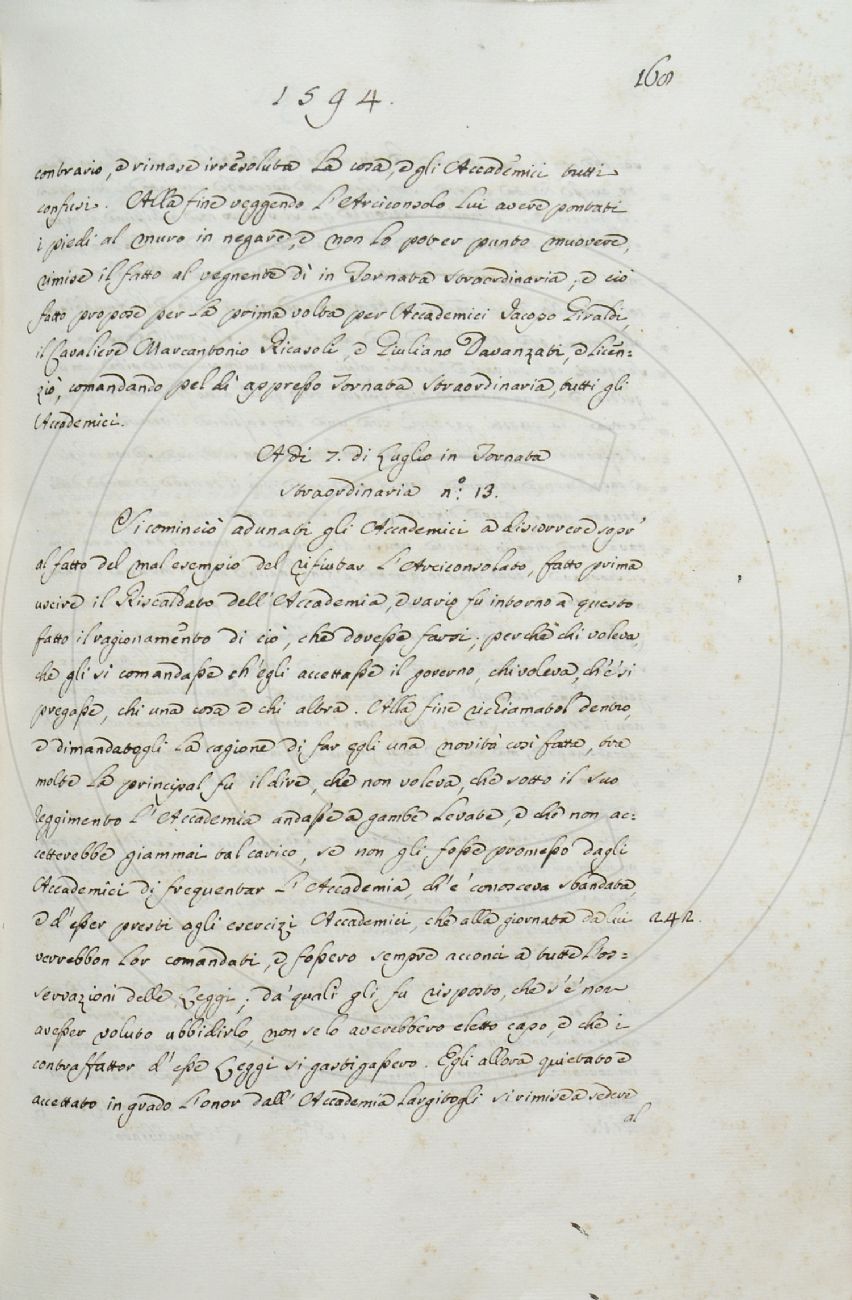 168
1594.
contrario, e rimase irresoluta la cosa, e gli Accademici tutti
confusi. Alla fine veggendo l'Arciconsolo lui avere pontati
i piedi al muro in negare, e non lo poter punto muovere,
rimise il fatto al vegnente dì in Tornata straordinaria, e ciò
fatto propose per la prima volta per Accademici Jacopo Giraldi,
il Cavaliere Marcantonio Ricasoli, e Giuliano Davanzati, e licen=
ziò, comandando pel dì appresso Tornata straordinaria, tutti gli
Accademici.
A dì 7. di Luglio in Tornata
straordinaria n.º 13.
Si cominciò adunati gli Accademici a discorrere sopr'
al fatto del mal esempio del rifiutar l'Arciconsolato, fatto prima
uscire il Riscaldato dell'Accademia, e vario fu intorno a questo
fatto il ragionamento di ciò, che dovesse farsi; perchè chi voleva,
che gli si comandasse ch'egli accettasse il governo, chi voleva, ch'e' si
pregasse, chi una cosa e chi altra. Alla fine richiamatol dentro,
e dimandatogli la cagione di far egli una novità così fatta, tre
molte la principal fu il dire, che non voleva, che sotto il suo
reggimento l'Accademia andasse a gambe levate, e che non ac=
cetterebbe giammai tal carico, se non gli fosse promesso dagli
Accademici di frequentar l'Accademia, ch'e' conosceva sbandata,
e d'esser presti agli esercizi Accademici, che alla giornata da lui 242.
verrebbon lor comandati, e fossero sempre acconci a tutte l'os=
servazioni delle Leggi; da' quali gli fu risposto, che s'e' non
avesser voluto ubbidirlo, non se lo averebbero eletto capo, e che i
contraffattor d'esse Leggi si gastigassero. Egli allora quietato e
accettato in grado l'onor dall'Accademia largitogli si rimise a sedere
al